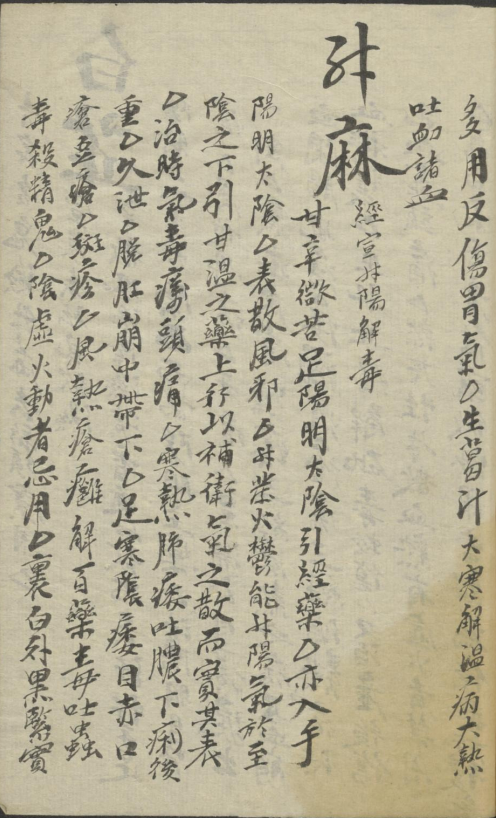 多用反伤胃氣△生葛汁大寒解温病大熱
吐衂諸血
升麻
經宣升陽解毒
甘辛微苦足陽明太陰引經藥△亦入手
陽明太陰△表散風邪△升柴火鬱能升陽氣於至
陰之下引甘温之藥上行以補衛氣之散而實其表
△治時氣毒癘頭痛△寒熱肺痿吐膿下痢後
重△久泄△脱肛崩中帶下△足寒陰痿目赤口
瘡痘瘡△斑疹△風熱瘡癰解百藥毒吐蟲
毒殺精鬼△陰虚火動者忌用△裏白外黑緊實